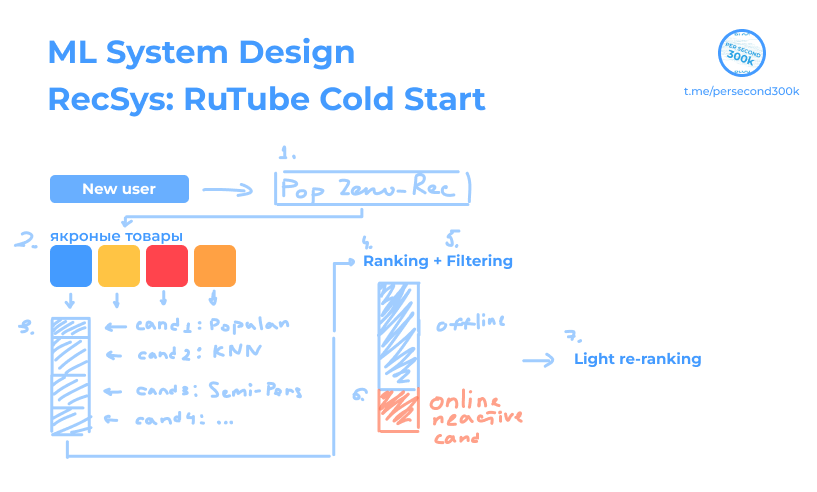 ML System Design
RecSys: RuTube Cold Start
PER SECOND
300k
t.me/persecond300k
1.
New user
Pop Zenu-Rec
2. якроные товары
4. 5.
Ranking + Filtering
3.
cand1: Popular
cand2: KNN
cand3: Semi-Pers
cand4: ...
offline
6.
online
reactive
cand
7.
Light re-ranking